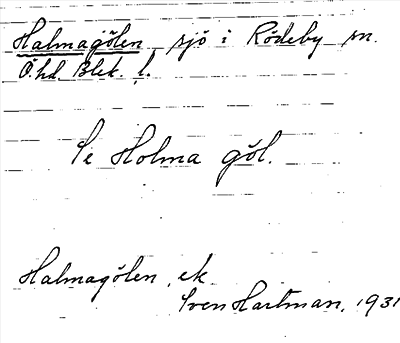 Halmagölen sjö i Rödeby sn.
Ö. hd. Blek. l.
Se Holma göl.
Halmagölen, ek
Sven Hartman, 1931